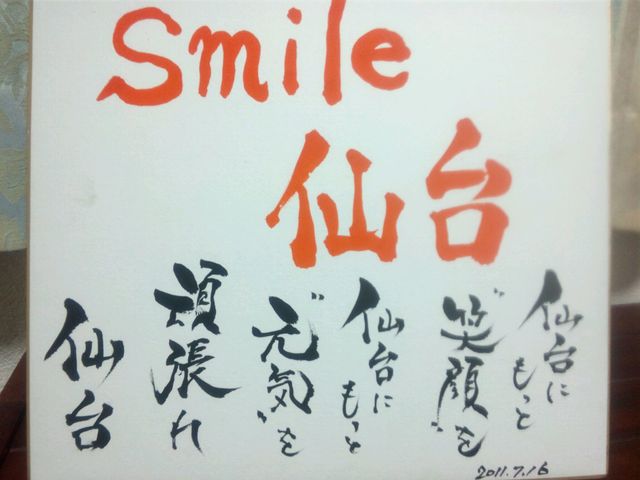 Smile
仙台
仙台にもっと
〝笑顔〟を
仙台にもっと
〝元気〟を
頑張れ
仙台
2011.7.16